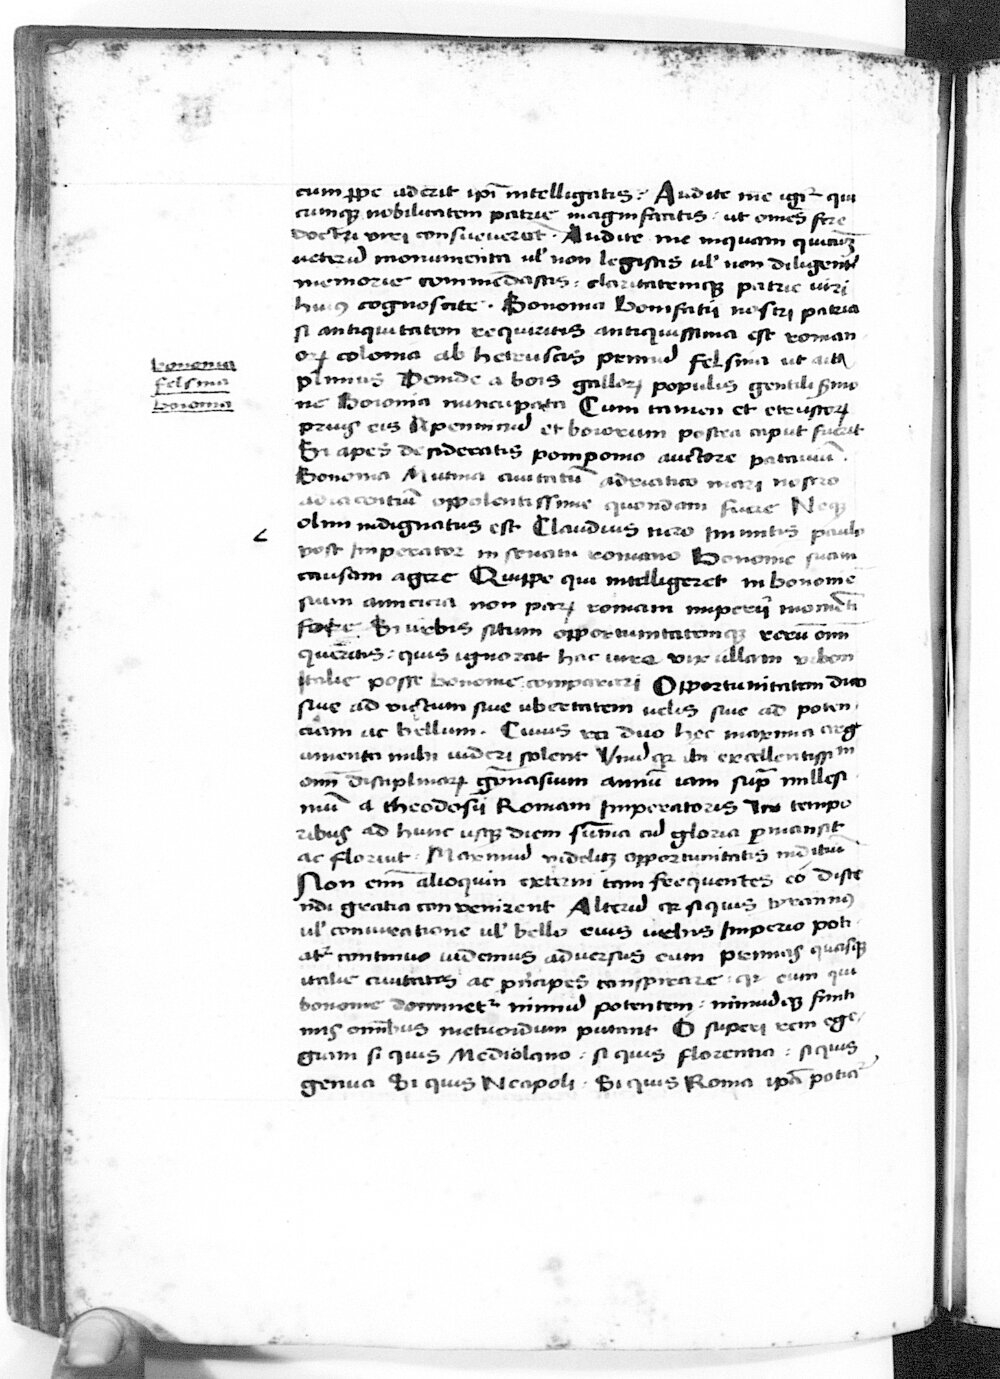 cum ꝓpe aderit ip̄i intelligatis : Audite me igr̃ qui
cunq nobilitatem patrie magnifacitis : ut om̃es fere
doctri viri consueverūt . Audite me inquam qui
veterū monumenta ul' non legistis ul' non diligent̃
memorie commēdastis : claritatemq patrie viri
huiꝰ cognoscite . Bononia Bonifatii nostri patria
si antiquitatem requiritis antiquissima est roman
oꝝ colonia ab hetruscis primū felsina ut ait
plinius Deinde a bois galloꝝ populis gentili s̃mo
ne Boionia nuncupata Cum tamen et etruscoꝝ
prius eis Apenninū et boiorum postea caput fuerit
Si apes desideratis pomponio auctore patavium .
Bononia Mutina civitatū adriatico mari nostro
adiacentiū oppolentissime quondam fuere Neq
olim indignatus est Claudius nero Imintis paulo
post Imperator in senatu romano Bononie suam
causam agere Quippe qui intelligeret in bononie
sium amicicia non paꝝ romam imperii momēti
fore . Si urbis situm opportunitatemq rerū om̃i
queritis : quis ignorat hac vix ullam urbem
italie posse bononie comparari Opportunitatem dico
sive ad victum sive ubertatem velis sive ad poten
ciam ac bellum . Cuius rei duo hec maxima arg
umenta mihi videri solent Unū ibi excellentissim
om̃i disciplinaꝝ gym̃nasium annū iam sup̃ milles
mū a theodosii Romani Imperatoris tempo
ribus ad hunc usq diem sūma cū gloria ꝑmansit
ac floruit . Maximū videlitz opportunitatis inditiū
Non em̃ alioquin externi tam frequentes eo disce
ndi gratia convenirent Alterū si quis tyrannꝰ
ul' coniuratione ul' bello eius urbis Imperio poti
at̃ continuo videmus adversus eum primas quasq
italie civitates ac pñcipes conspirare : eum qui
bononie dominet̃ nimiū potentem : nimiūq finiti
mis omībus metuendum putant O superi rem egre
giam si quis Mediolano : si quis florentia : si quis
genua Si quis Neapoli . Si quis Roma ip̄a potiat̃
bononia
felsina
boionia